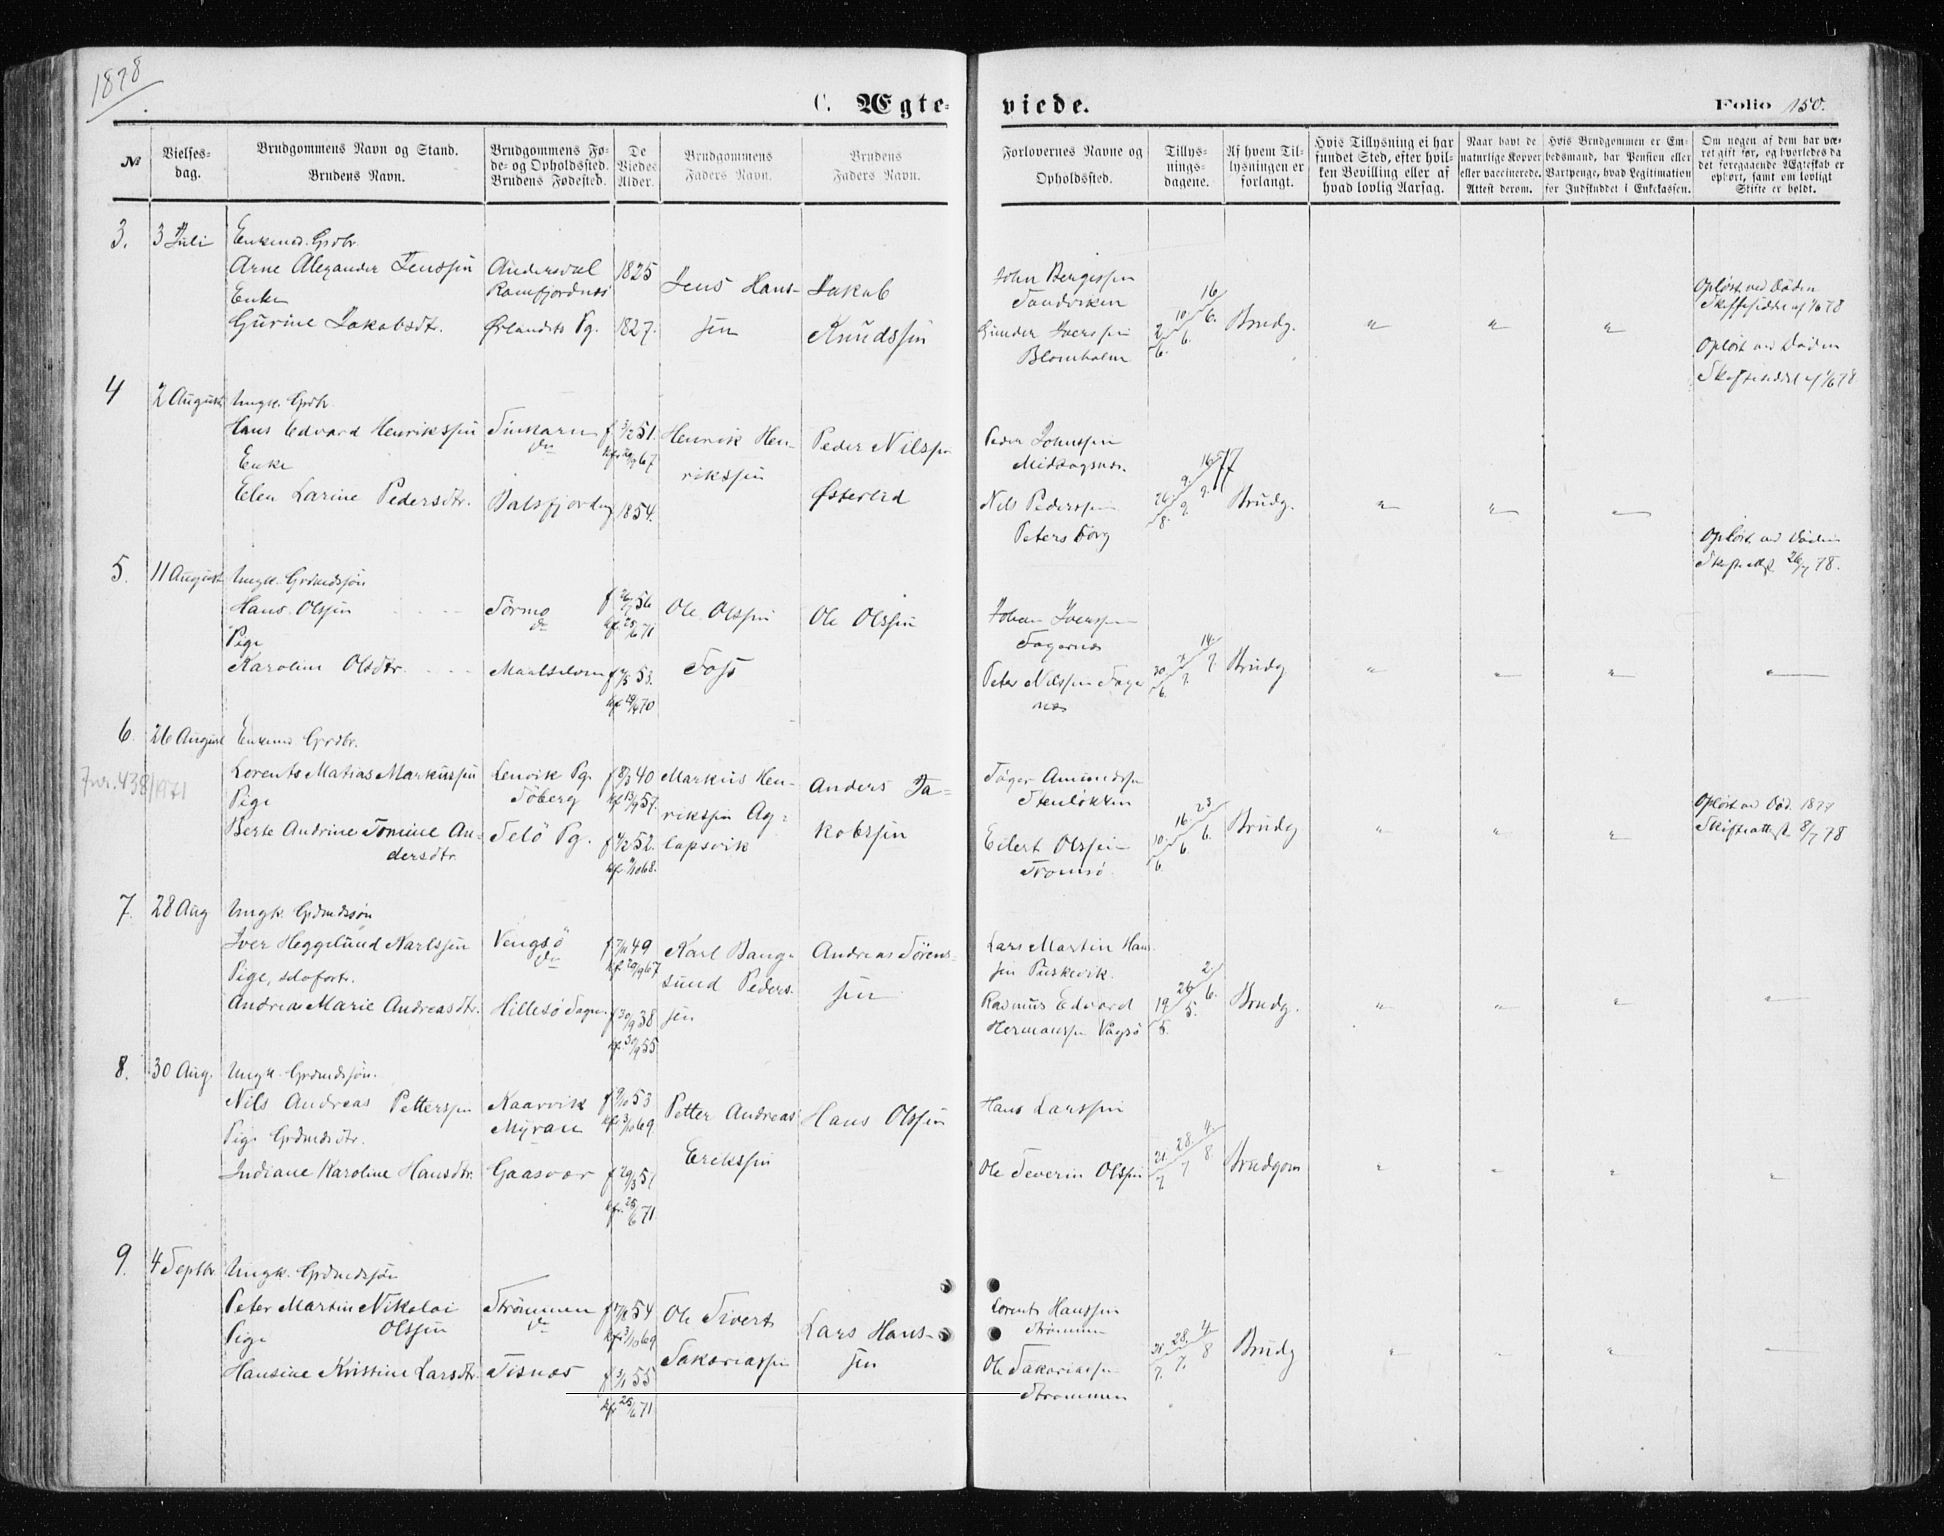 1878
C. Ægte-
viede.
Folio 150.
No
Vielses-
dag.
Brudgommens Navn og Stand.
Brudens Navn.
Brudgommens Fø-
de- og Opholdssted.
Brudens Fødested.
De
Viedes
Alder.
Brudgommens
Faders Navn.
Brudens
Faders Navn.
Forlovernes Navne og
Opholdssted.
Tillys-
nings-
dagene.
Af hvem Til-
lysningen er
forlangt.
Hvis Tillysning ei har
fundet Sted, efter hvil-
ken Bevilling eller af
hvad lovlig Aarsag.
Naar havt de
naturlige Kopper
eller vaccinerede.
Attest derom.
Hvis Brudgommen er Em-
bedsmand, har Pension eller
Vartpenge, hvad Legitimation
for Indskuddet i Enkekassen.
Om nogen af dem har væ-
ret gift før, og hvorledes da
det foregaaende Ægteskab er
ophørt, samt om lovligt
Skifte er holdt.
3. 3 Juli
Enkemd. Grdbr.
Arne Alexander Jenssen
Enke
Gurine Jakobsdtr.
Andersdal
Ramfjordnes
Ørlandets Pg.
1825
1827.
Jens Hans-
sen
Jakob
Knudssen
John Bergessen
Sandviken
Gunder Iverssen
Blomholm
2/6. 10/6. 16/6.
Brudg.
" " "
Opløst ved Døden
Opløst ved Døden
4 2 August
Ungk. Grdbr.
Hans Edvard Henrikssen
Enke
Elen Larine Pedersdtr.
do
Balsfjorden
1854.
Henrik Hen-
rikssen
Peder Nilssen
Østerlid
Peder Johnssen
Nils Pederssen
Petersborg
Brudg.
" " "
Opløst ved Døden
Skifteatt. 26/7 78.
5. 11 August
Ungk. Grdmdssøn
Hans Olssen
Pige
Karoline Olsdtr.
Sørmo
do
Maalselven
Ole Olssen
Foss
Ole Olssen
Johan Iverssen
Fagernes
Peter Nilssen Fager
nes
30/6. 7/7. 14/7.
Brudg
" " " "
6. 26 August
Fnr. 438/1971
Enkemd Grdbr.
Lorents Matias Markussen
Pige
Berte Andrine Tomine An-
dersdtr.
Lenvik Pg.
Søberg
Selö Pg.
Markus Hen-
rikssen Ag-
lapsvik
Anders Ja-
kobssen
Jøger Amundssen
Stenløkken
Eilert Olssen
Tromsö
10/6. 16/6. 23/6.
Brudg
" " "
Opløst ved Død. 1877
Skifteattst. 8/7 78
7. 28 Aug
Ungk. Grdmdssøn
Iver Heggelund Karlssen
Pige, selvfort.
Andrea Marie Andreasdtr.
Vengsö
do
Hillesö Sogn
Karl Bang-
sund Peders-
sen
Andreas Sörens-
sen
Lars Martin Hans-
sen Buskevik.
Rasmus Edvard
Hermanssen Vagsö
19/5. 26/5. 2/6.
Brudg.
" " " "
8. 30 Aug.
Ungk. Grdmdssøn.
Nils Andreas Petterssen
Pige Grdmdsdtr.
Indiane Karoline Hansdtr.
Kaarvik
Myran
Gaasvær
Petter Andreas
Erikssen
Hans Olssen
Hans Larssen
Ole Severin Olssen
21/7 28/7 4/8
Brudgom
" " " "
9. 4 Septbr.
Ungk. Grdmdssøn
Peter Martin Nikolai
Olssen
Pige
Hansine Kristine Larsdtr.
Strømmen
do
Tisnes
Ole Sivert
Sakariassen
Lars Hans-
sen
Lorents Hanssen
Strømmen
Ole Sakariassen
Strømmen
21/7. 28/7. 4/8
Brudg
" " " "